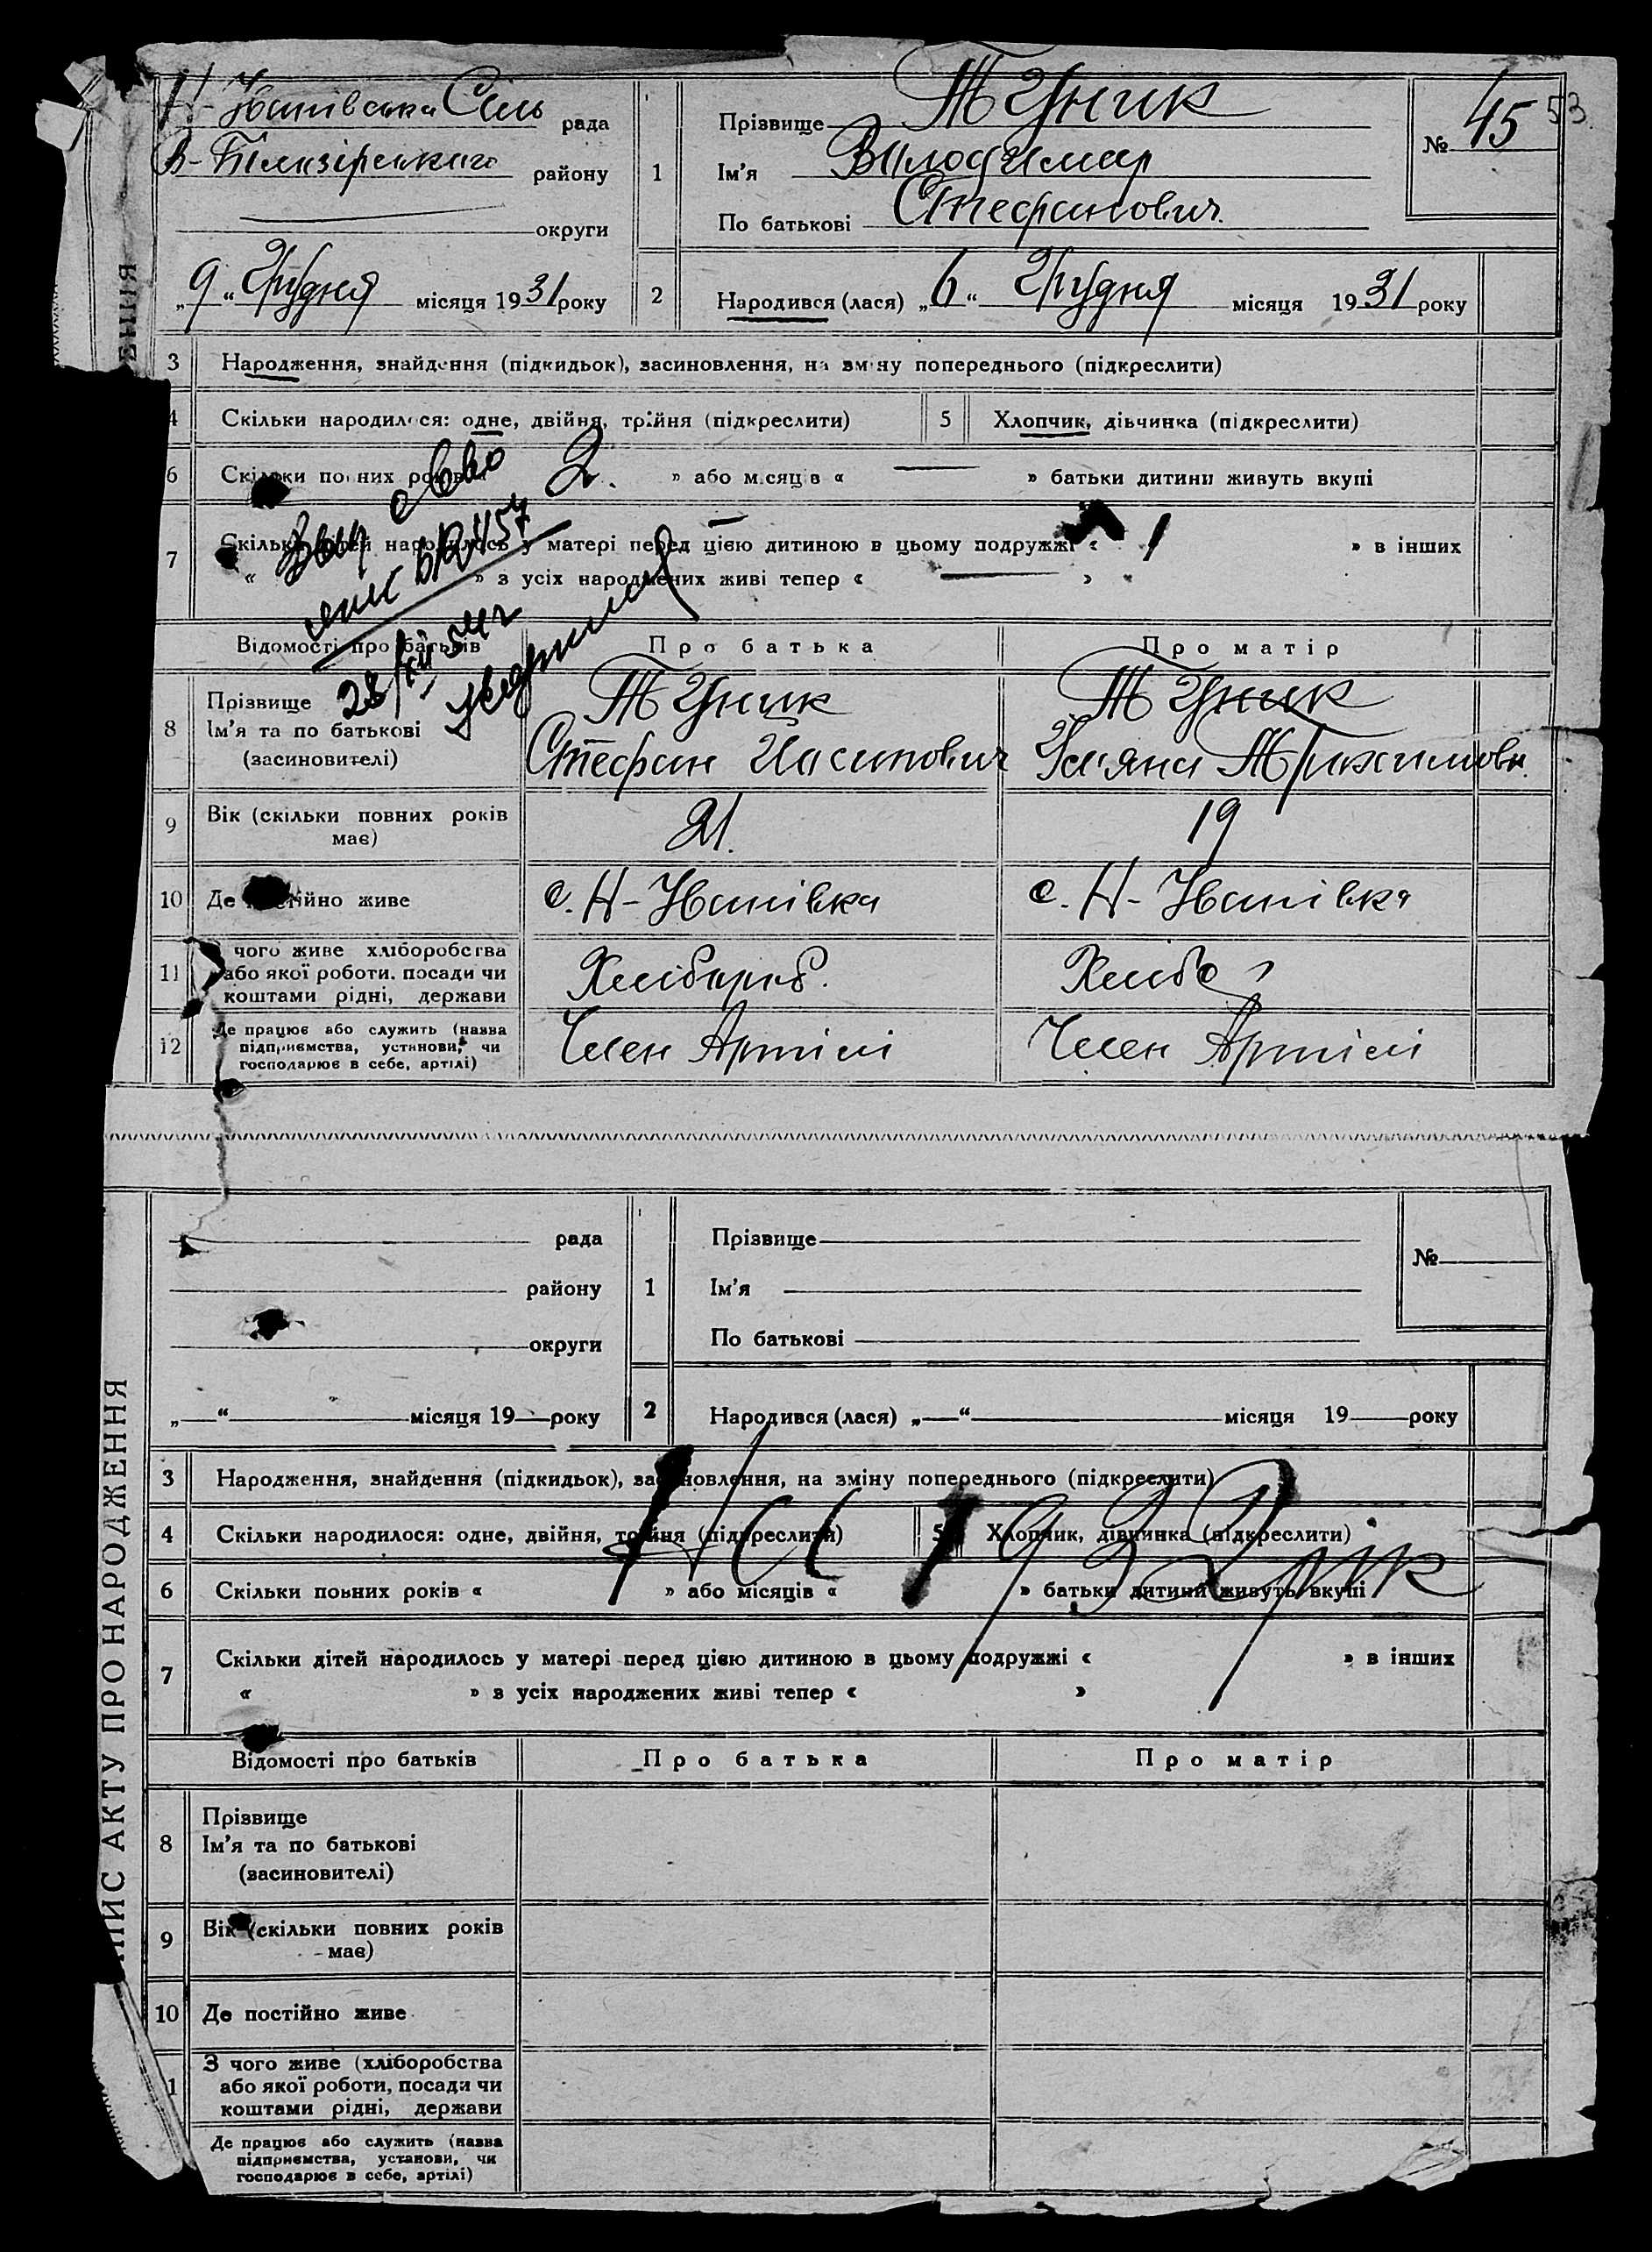 Н-Іванівська Сіль рада
В-Білозірського району
округи
„9“ Грудня місяця 1931 року
1
Прізвище Туник
Ім'я Володимир
По батькові Стефанович
№ 45
53
2
Народився (лася) „6“ Грудня місяця 1931 року
ЕННЯ
3 Народження, знайдення (підкидьок), засиновлення, на зміну попереднього (підкреслити)
4 Скільки народилося: одне, двійня, трійня (підкреслити) 5 Хлопчик, дівчинка (підкреслити)
6 Скільки повних років « 2. » або місяців « — » батьки дитини живуть вкупі
7 Скільки дітей народилось у матері перед цією дитиною в цьому подружжі « 1 » в інших
« — » з усіх народжених живі тепер « — »
Выд. св-во
28/XII 54 г
Відомості про батьків Про батька Про матір
8 Прізвище Туник Туник
Ім'я та по батькові Стефан Иосипович Ул'яна
(засиновителі)
9 Вік (скільки повних років має) 21. 19
10 Де постійно живе с. Н-Іванівка с. Н-Іванівка
11 чого живе хліборобства Хлібороб. Хлибо
або якої роботи, посади чи
коштами рідні, держави
12 Де працює або служить (назва Член Артілі Член Артілі
підприємства, установи, чи
господарює в себе, артілі)
рада
району
округи
„—“ місяця 19— року
1
Прізвище
Ім'я
По батькові
№
2
Народився (лася) „—“ місяця 19— року
ПИС АКТУ ПРО НАРОДЖЕННЯ
3 Народження, знайдення (підкидьок), засиновлення, на зміну попереднього (підкреслити)
4 Скільки народилося: одне, двійня, трійня (підкреслити) 5 Хлопчик, дівчинка (підкреслити)
На 1932 рік
6 Скільки повних років « » або місяців « » батьки дитини живуть вкупі
7 Скільки дітей народилось у матері перед цією дитиною в цьому подружжі « » в інших
« » з усіх народжених живі тепер « »
Відомості про батьків Про батька Про матір
8 Прізвище
Ім'я та по батькові
(засиновителі)
9 Вік (скільки повних років
має)
10 Де постійно живе
1 З чого живе (хліборобства
або якої роботи, посади чи
коштами рідні, держави
Де працює або служить (назва
підприємства, установи, чи
господарює в себе, артілі)